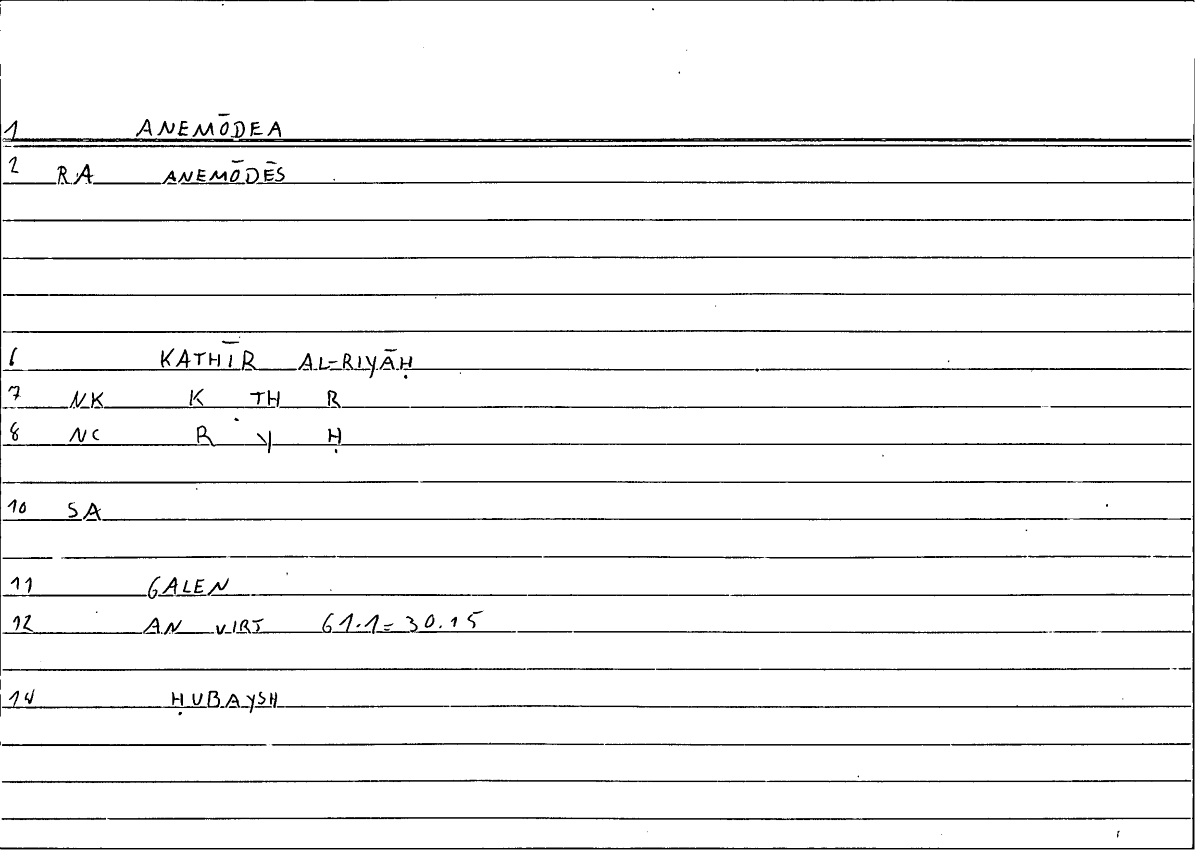 1 ANEMŌDEA
2 RA ANEMŌDĒS
6 KATHĪR AL-RIYĀḤ
7 NK K TH R
8 NC R Y Ḥ
10 SA
11 GALEN
12 AN VIRT 61.1=30.15
14 ḤUBAYSH